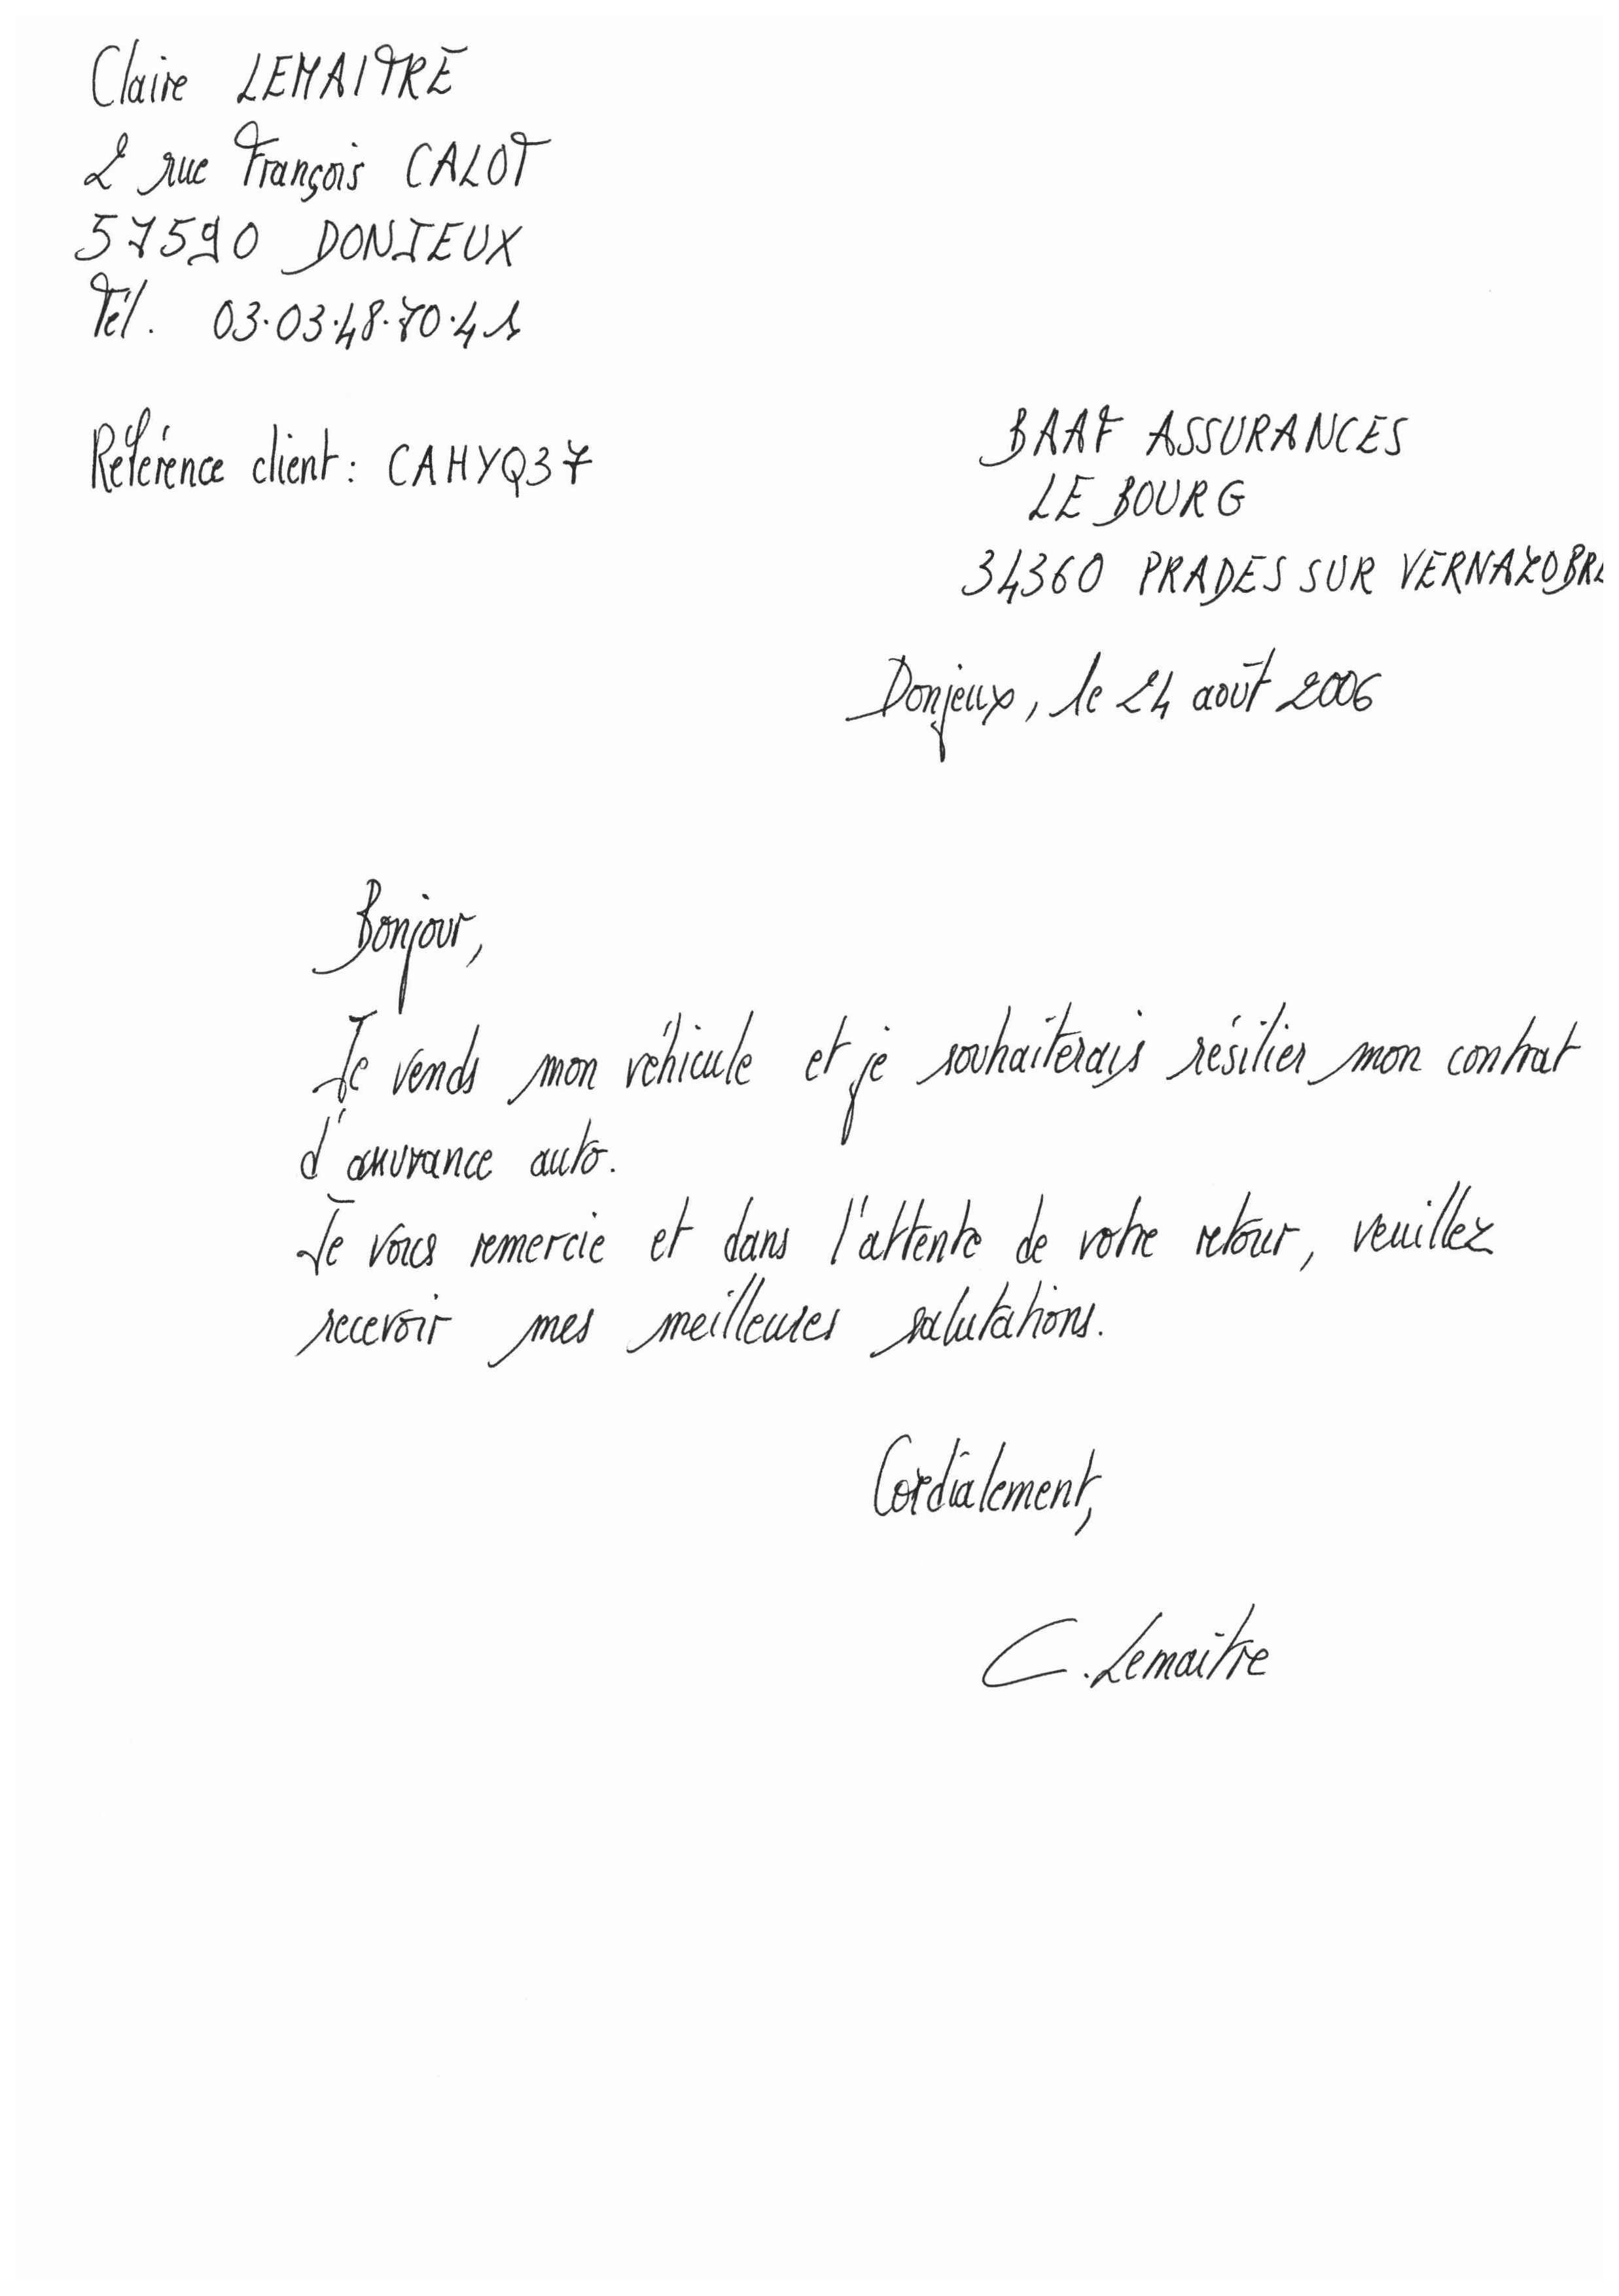 Claire LEMAITRE
2 rue François CALOT
57590 DONJEUX
Tél. 03.03.48.70.41
Référence client : CAHYQ37
BAAF ASSURANCES
LE BOURG
34360 PRADES SUR VERNAZOBRE
Donjeux, le 24 août 2006
Bonjour,
Je vends mon véhicule et je souhaiterais résilier mon contrat
d'assurance auto.
Je vous remercie et dans l'attente de votre retour, veuillez
recevoir mes meilleures salutations.
Cordialement,
C. Lemaitre